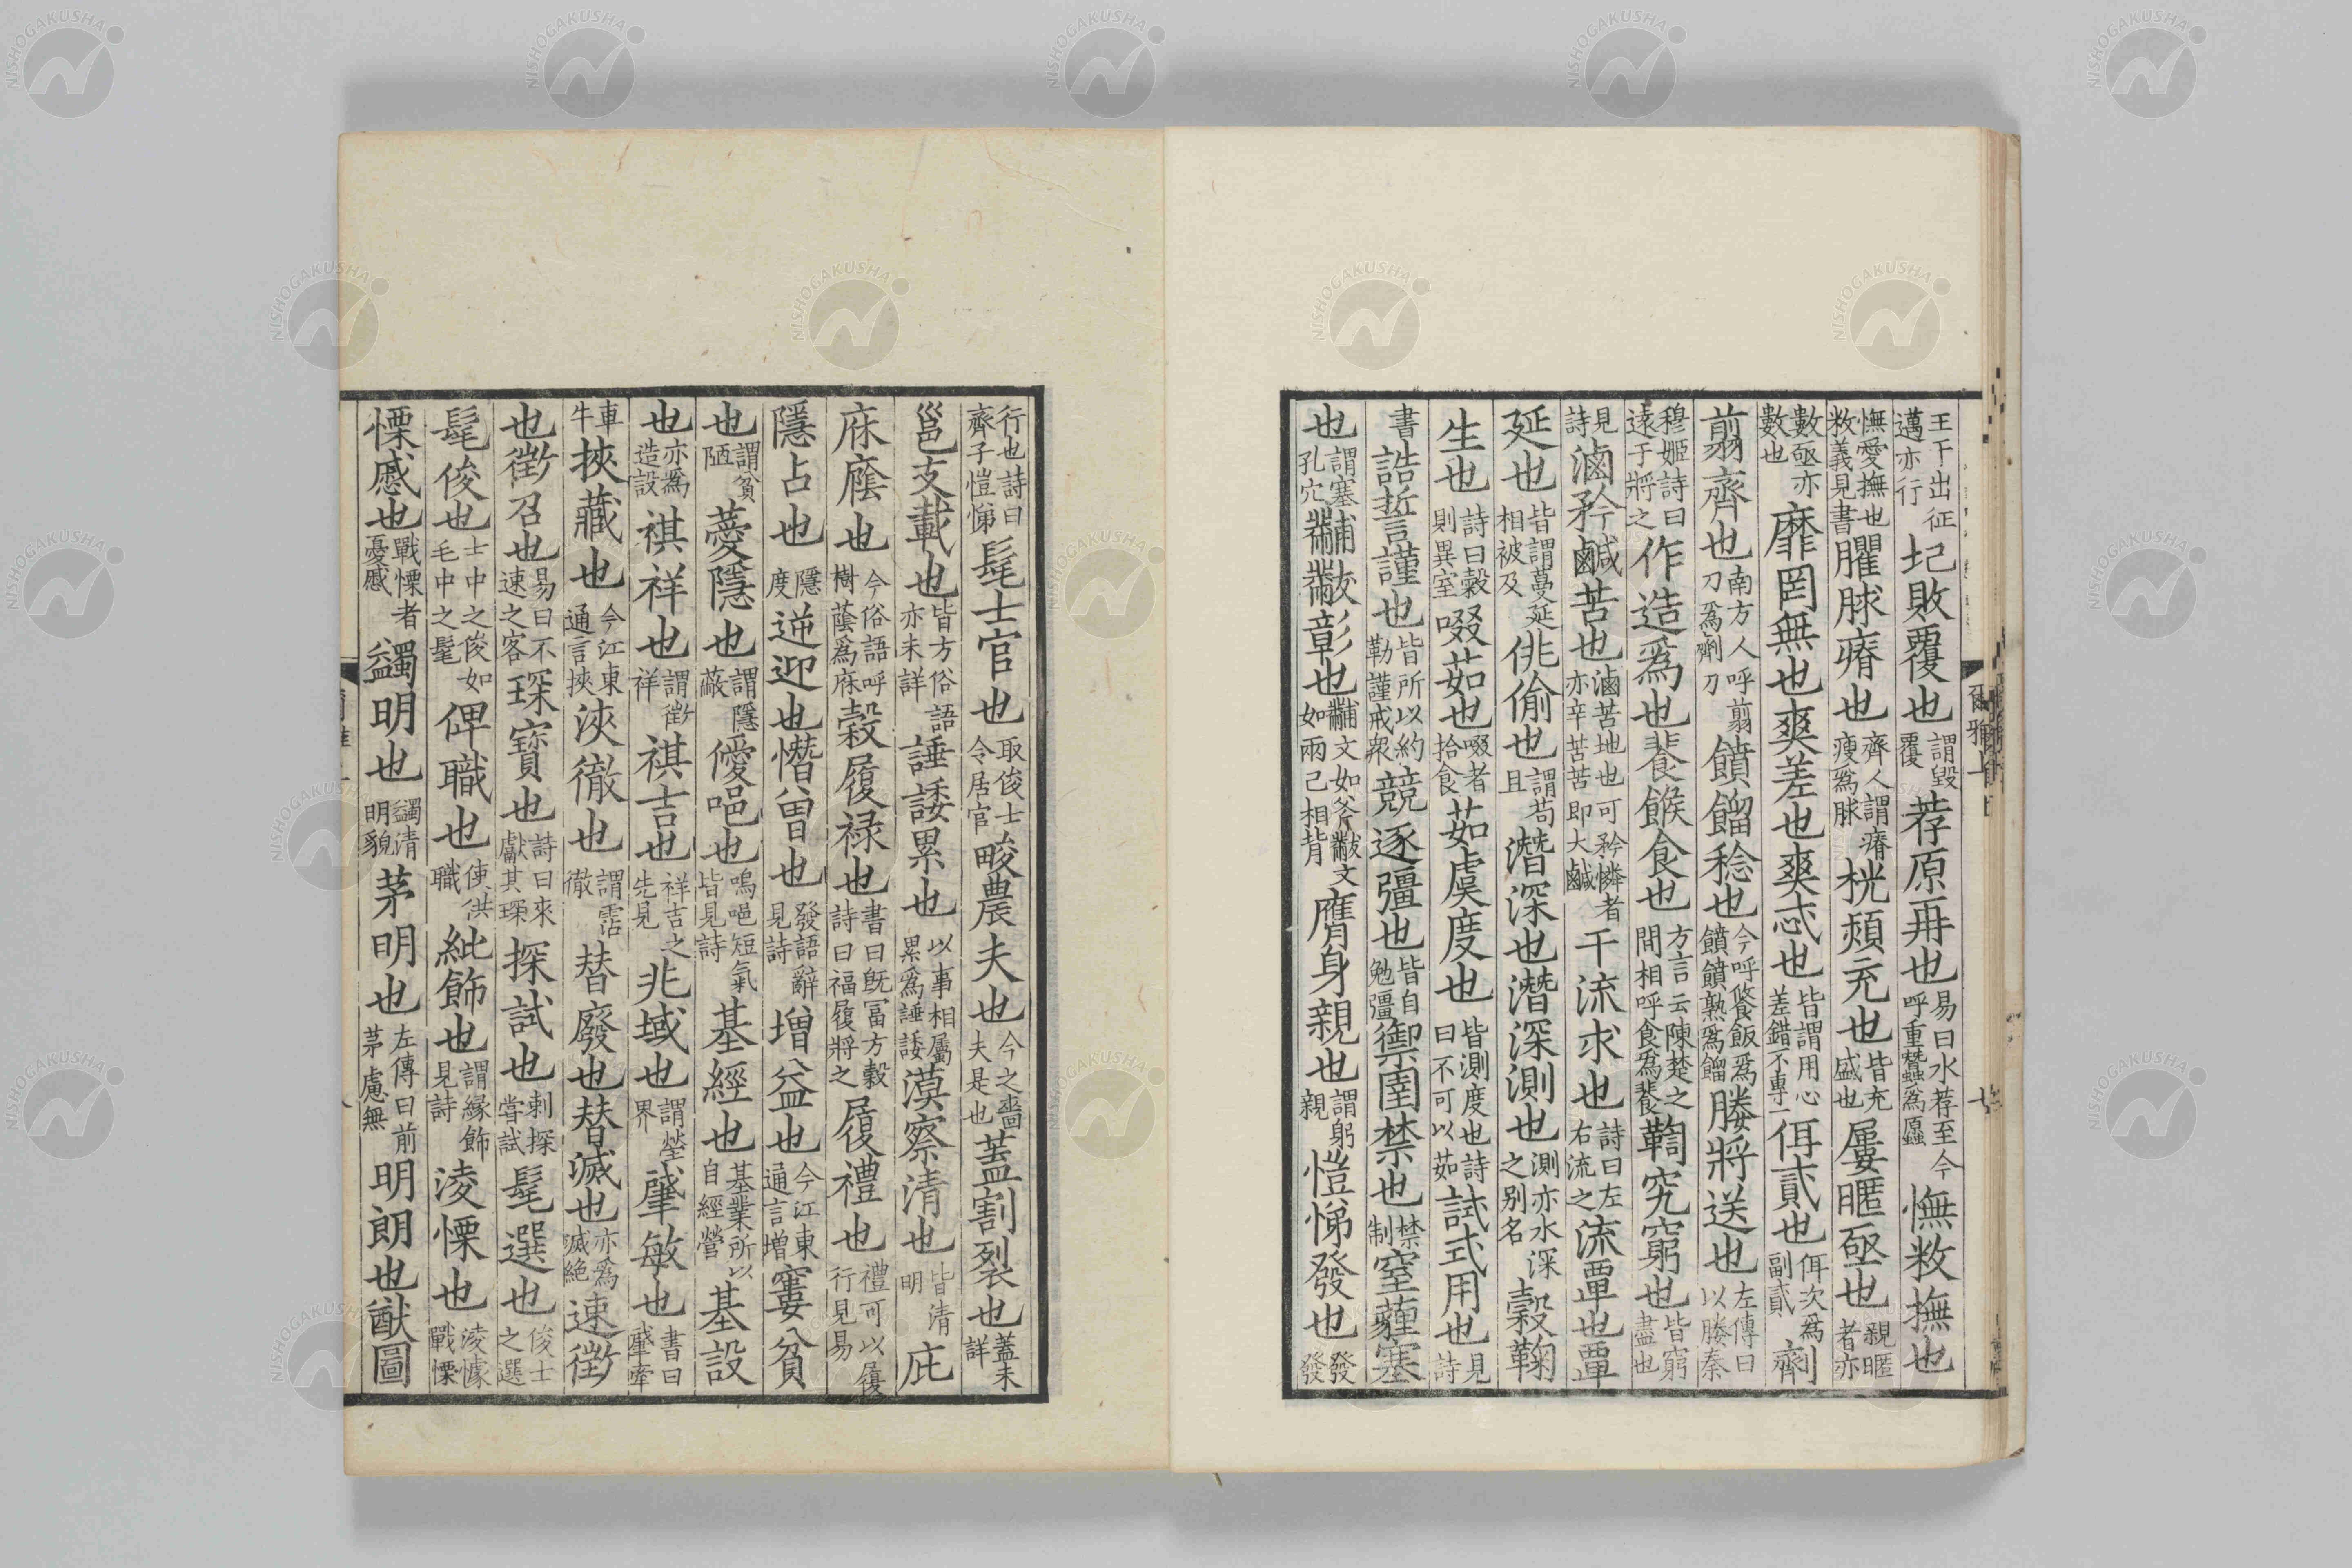 王于出征邁亦行圮敗覆也謂毀覆荐原再也易曰水荐至今呼重蠶爲䘉憮敉撫也
憮愛撫也敉義見書臞脙瘠也齊人謂瘠瘦爲脙桄熲充也皆充盛也屢暱亟也親暱者亦
數亟亦數也靡罔無也爽差也爽忒也皆謂用心差錯不專一佴貳也佴次爲副貳劑
翦齊也南方人呼翦刀爲劑刀饙餾稔也今呼䬳飯爲饙饙熟爲餾媵將送也左傳曰以媵秦
穆姬詩曰遠于將之作造爲也餥餱食也方言云陳楚之間相呼食爲餥鞫究窮也皆窮盡也
見詩滷矜鹹苦也滷苦地也可矜憐者亦辛苦苦即大鹹干流求也詩曰左右流之流覃也覃
延也皆謂蔓延相被及佻偷也謂苟且潛深也潛深測也測亦水深之别名穀鞠
生也詩曰穀則異室啜茹也啜者拾食茹虞度也皆測度也詩曰不可以茹試式用也見詩
書誥誓謹也皆所以約勒謹戒衆競逐彊也皆自勉彊禦圉禁也禁制窒薶塞
也謂塞孔穴黼黻彰也黼文如斧黻文如兩己相背膺身親也謂躬親愷悌發也發發
行也詩曰齊子愷悌髦士官也取俊士令居官畯農夫也今之嗇夫是也蓋割裂也蓋未詳
邕支載也皆方俗語亦未詳諈諉累也以事相屬累爲諈諉漠察清也皆清明庇
庥廕也今俗語呼樹蔭爲庥穀履禄也書曰旣冨方穀詩曰福履將之履禮也禮可以履行見易
隱占也隱度逆迎也憯曾也發語辭見詩增益也今江東通言增窶貧
也謂貧陋薆隱也謂隱蔽僾唈也嗚唈短氣皆見詩基經也基業所以自經營基設
也亦爲造設祺祥也謂徵祥祺吉也祥吉之先見兆域也謂塋界肇敏也書曰肇牽
車牛挾藏也今江東通言挾浹徹也謂霑徹替廢也替滅也亦爲滅絶速徵
也徵召也易曰不速之客琛寶也詩曰來獻其琛探試也刺探嘗試髦選也俊士之選
髦俊也士中之俊如毛中之髦俾職也使供職紕飾也謂緣飾見詩淩慄也淩懅戰慄
慄慼也戰慄者憂慼蠲明也蠲清明貌茅明也左傳曰前茅慮無明朗也猷圖